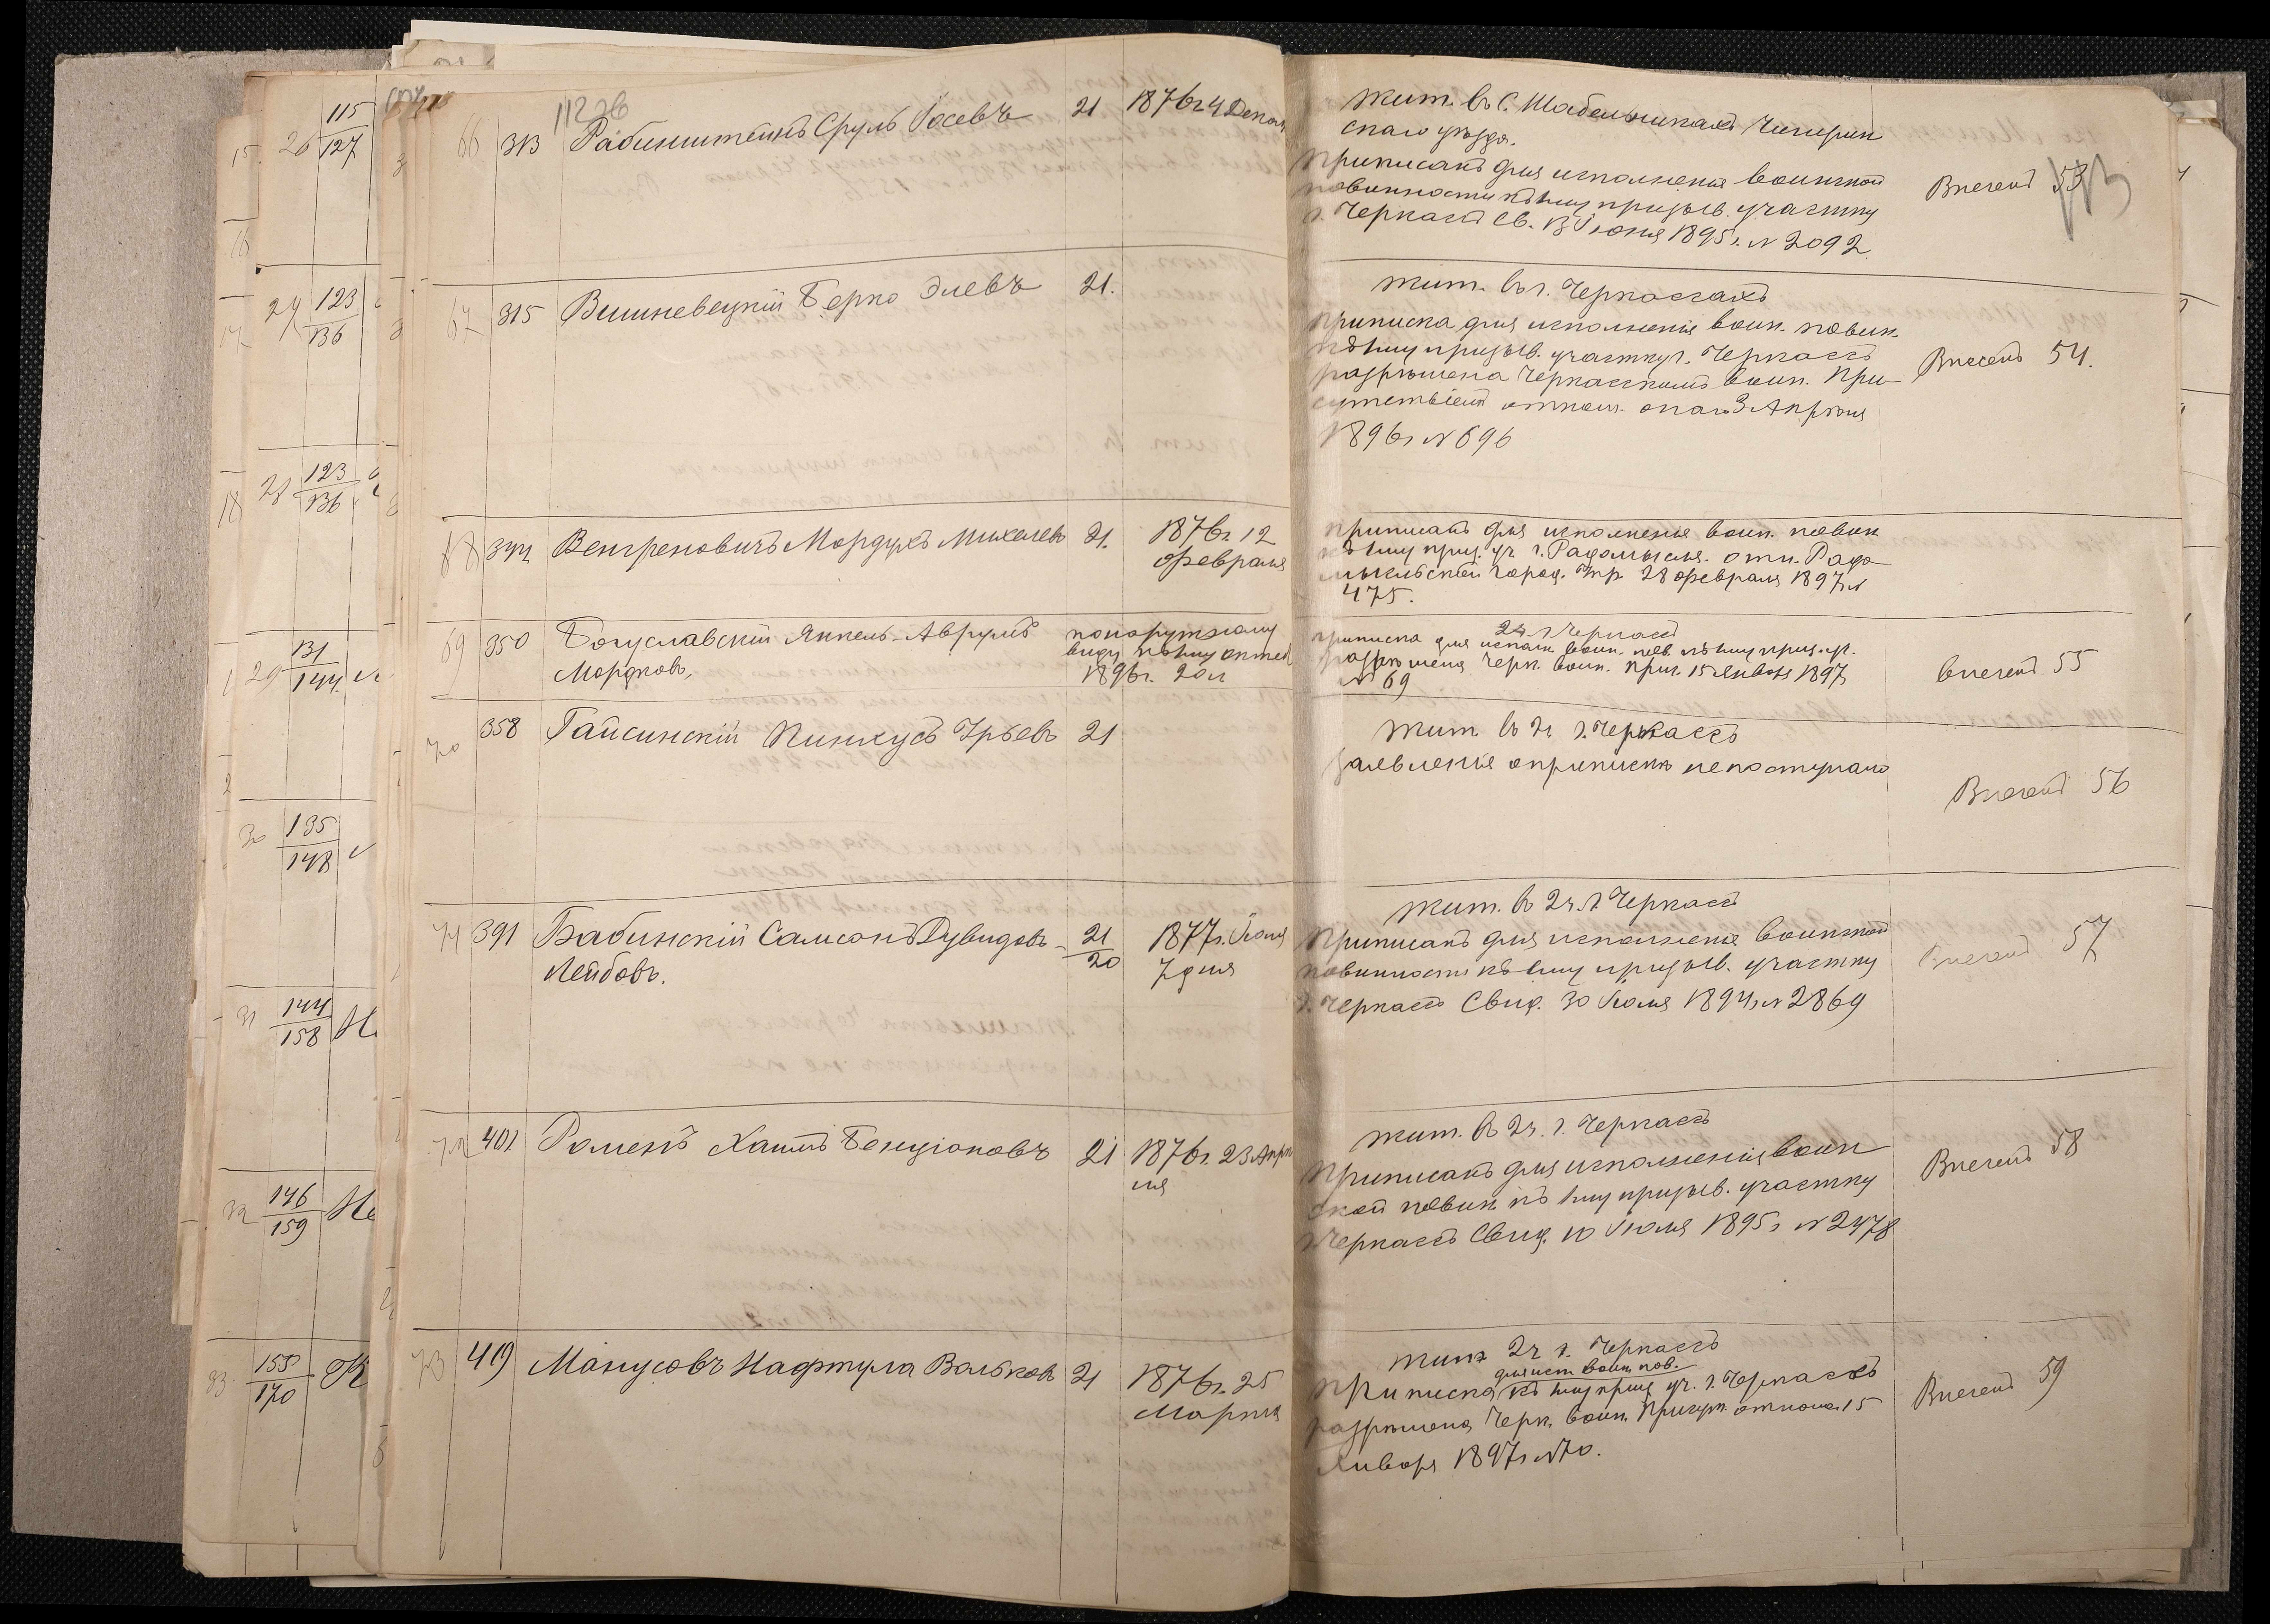 112 зв
66 313 Рабинштейнъ Сруль Іосевъ 21 1876 г 4 Декаб
жит. въ с. Шабельникахъ Чигирин
скаго уѣзда.
Приписанъ для исполненія воинской
повинности къ 1му призыв. участку
г. Черкассъ св. 13 Іюня 1895 г. № 2092
Внесенъ 53
113
67 315 Вишневецкій Берко Элевъ 21.
жит. въ г. Черкассахъ
приписка для исполненія воин. повин.
къ 1му призыв. участку г. Черкассъ
разрѣшена Черкасскимъ воин. При-
сутствіемъ отнош. онаго 3 Апрѣля
1896 г № 696
Внесенъ 54.
68 344 Венгреновичъ Мордухъ Михелевъ 21. 1876 г. 12
февраля
приписанъ для исполненія воин. повин
къ 1му приз. уч г. Радомысля. отн. Радо
мысльской город. Упр. 28 февраля 1897 г №
475.
69 350 Богуславскій Янкель-Аврумъ
Мордковъ,
по наружному
виду къ 1му октяб
1896 г. 20 л
2 ч. г. Черкассъ
приписка для исполн. воин. пов. къ 1му приз. уч.
разрѣшена Черк. воин. прис. 15 Января 1897 г
№ 69
внесенъ 55
70 358 Гайсинскій Пинхусъ Урьевъ 21
жит въ 2ч г. Черкассъ
Заявленія о припискѣ не поступало
Внесенъ 56
71 391 Бабинскій Самсонъ Дувидовъ-
Лейбовъ.
21
20
1877 г. Іюля
7 дня
жит. въ 2ч. г. Черкассъ
Приписанъ для исполненія воинской
повинности къ 1му призыв. участку
г. Черкассъ Свид. 30 Іюля 1894 г № 2869
Внесенъ 57
72 401 Роменъ Хаимъ Бенціоновъ 21 1876 г. 23 Апрѣ
ля
жит. въ 2ч. г. Черкассъ
Приписанъ для исполненія воин
ской повин. къ 1му призыв. участку
г. Черкассъ Свид. 10 Іюля 1895 г № 2478
Внесенъ 58
73 419 Манусовъ Нафтула Вольковъ 21 1876 г. 25
Марта
жит 2ч г. Черкассъ
для исп. воин. пов.
Приписка къ 1му приз уч. г. Черкассъ
разрѣшена Черк. воин. Присут. отнош. 15
Января 1897 г № 70.
Внесенъ 59
26 115
127
27 123
136
28 123
136
29 131
144
30 135
148
31 144
158 Н
32 146
159 Не
33 155
170
15
16
17
18